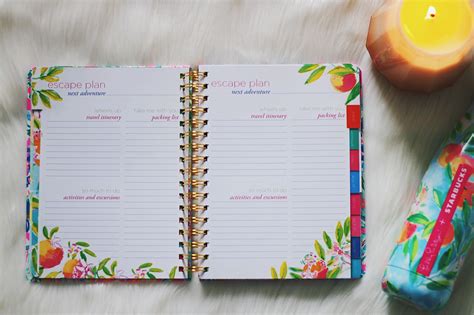 escape plan
next adventure
where's up
take me with you
travel itinerary
packing list
so much to do
activities and excursions
escape plan
next adventure
where's up
take me with you
travel itinerary
packing list
so much to do
activities and excursions
+ STARBUCKS